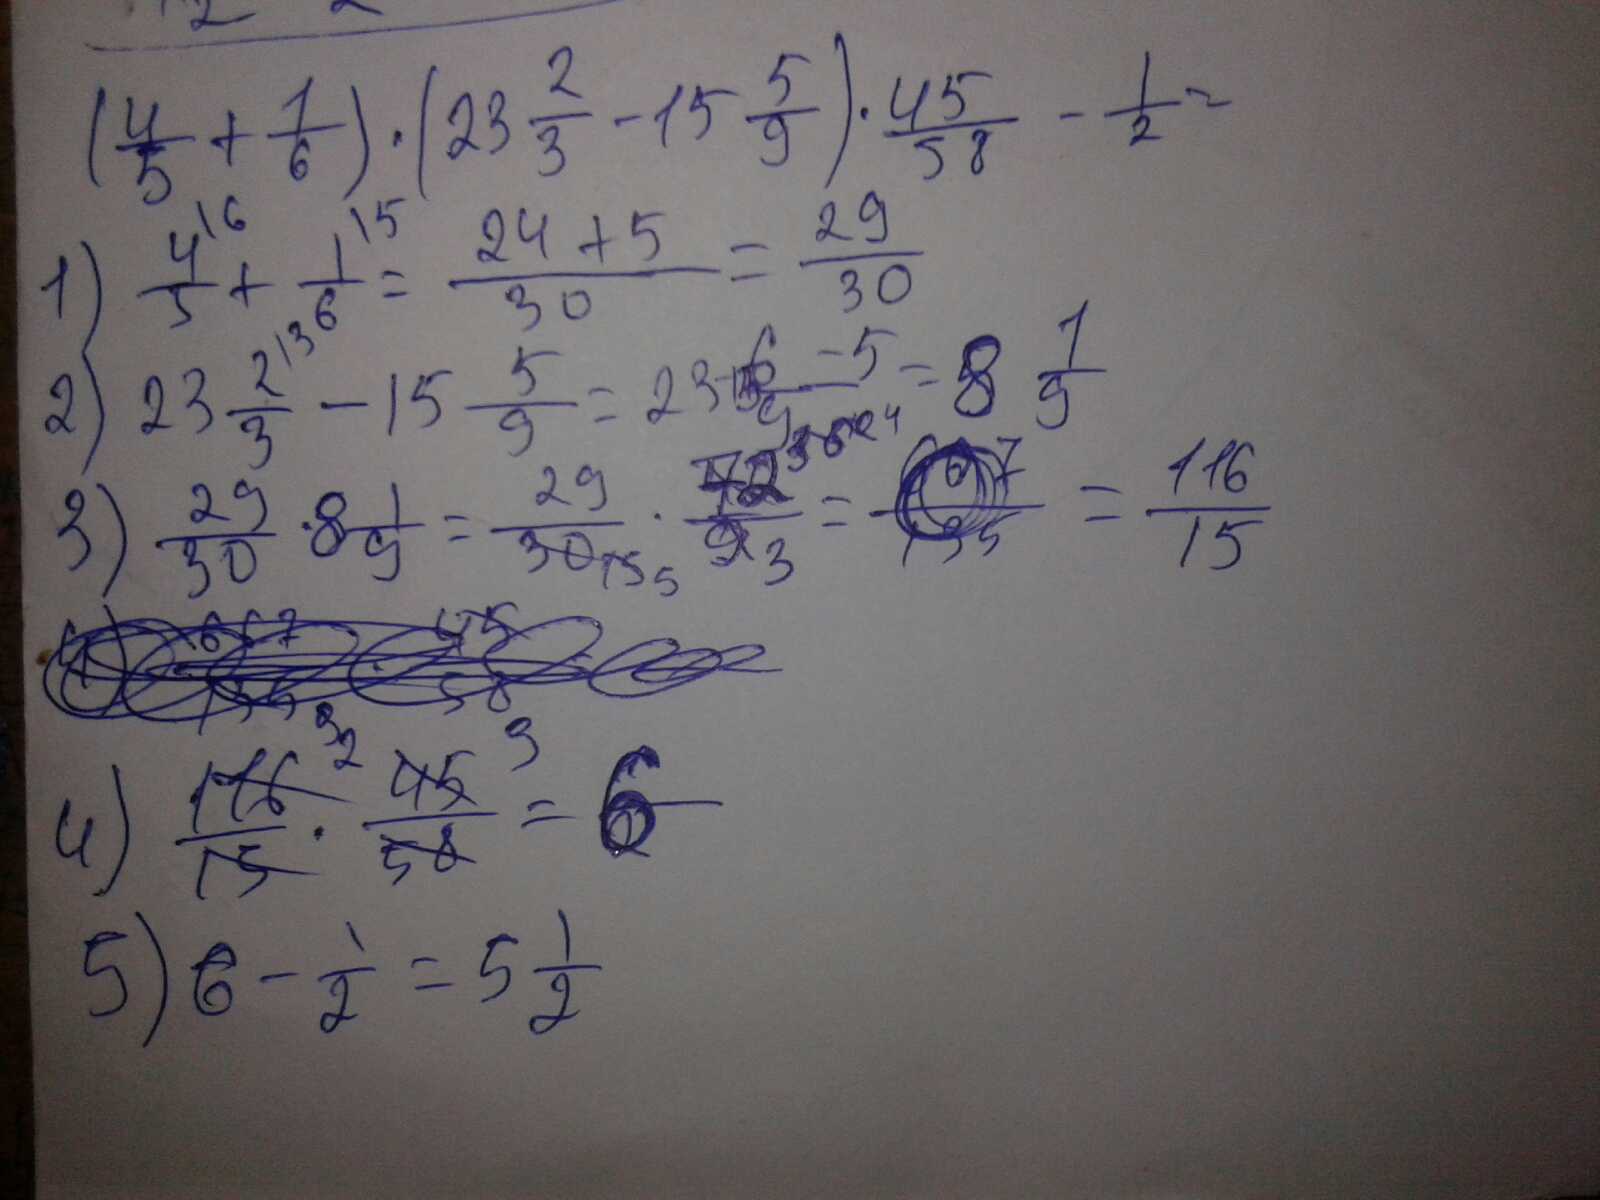 (4/5 + 1/6) · (23 2/3 - 15 5/9) · 45/58 - 1/2 =
1) 4/5 \6 + 1/6 \5 = 24 + 5/30 = 29/30
2) 23 2/3 \3 - 15 5/9 = 23-15 6 - 5/9 = 8 1/9
3) 29/30 · 8 1/9 = 29/30 15 5 · 72/9 3 = /135 = 116/15
4) 116/15 2 · 45/58 3 = 6
5) 6 - 1/2 = 5 1/2